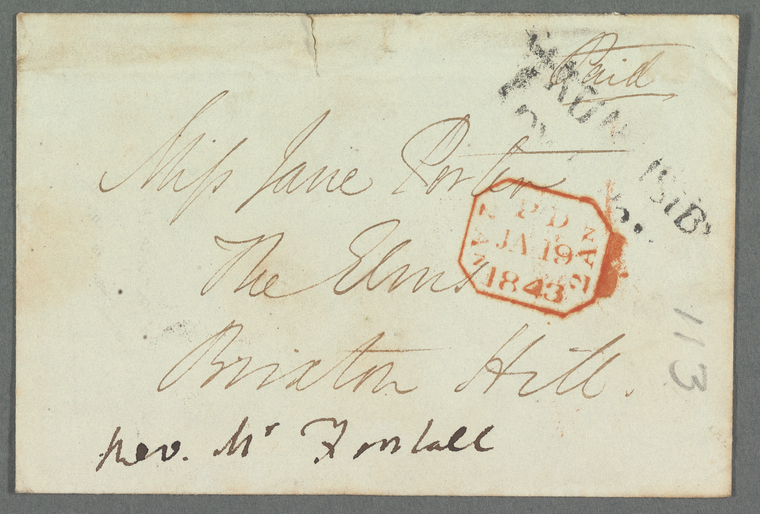 Paid
Miss Jane Porter
The Elms
Brixton Hill.
Rev. Mr
PD
JA 19
1843
113